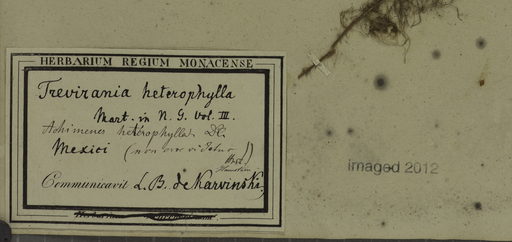 HERBARIUM REGIUM MONACENSE
Trevirania heterophylla
Mart. in N. G. Vol. III.
Achimenes heterophylla DC
Mexici (non
Hanstein
Communicavit L. B. de Karwinski
Herbarium
imaged 2012